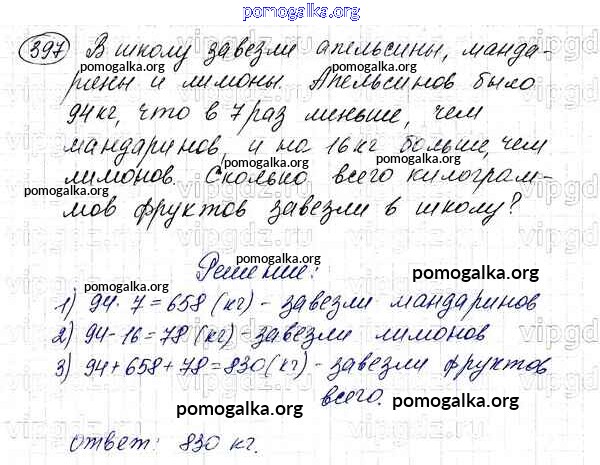 pomogalka.org
397 В школу завезли апельсины, манда-
pomogalka.org pomogalka.org
рины и лимоны. Апельсинов было
94 кг, что в 7 раз меньше, чем
pomogalka.org pomogalka.org
мандаринов, и на 16 кг больше, чем
pomogalka.org
лимонов. Сколько всего килограм-
pomogalka.org
мов фруктов завезли в школу?
pomogalka.org
Решение:
pomogalka.org pomogalka.org
1) 94 · 7 = 658 (кг) - завезли мандаринов
2) 94 - 16 = 78 (кг) - завезли лимонов
pomogalka.org
3) 94 + 658 + 78 = 830 (кг) - завезли фруктов
всего.
pomogalka.org pomogalka.org
ответ: 830 кг.